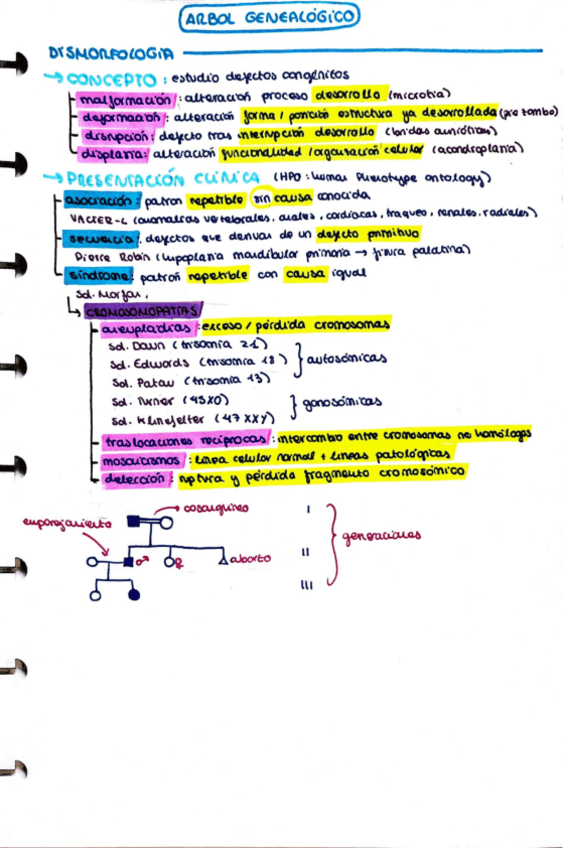 ARBOL GENEALÓGICO
DISMORFOLOGIA
→ CONCEPTO : estudio defectos congénitos
malformación : alteración proceso desarrollo (microtia)
deformación : alteración forma / posición estructura ya desarrollada (pie zambo)
disrupción : defecto tras interrupción desarrollo (bridas amnióticas)
displasia : alteración funcionalidad / organización celular (acondroplasia)
→ PRESENTACIÓN CLÍNICA (HPO : human Phenotype ontology)
asociación : patron repetible sin causa conocida
VACTER-L (anomalías vertebrales, anales, cardiacas, traqueo, renales, radiales)
secuencia : defectos que derivan de un defecto primitivo
Pierre Robin (hipoplasia mandibular primaria → fisura palatina)
síndrome : patrón repetible con causa igual
Sd. Marfan,
CROMOSOMOPATÍAS
aneuploidias : exceso / pérdida cromosomas
Sd. Down (trisomía 21)
Sd. Edwards (trisomía 18) } autosómicas
Sd. Patau (trisomía 13)
Sd. Turner (45X0) } gonosómicas
Sd. Klinefelter (47 XXY)
traslocaciones reciprocas : intercambio entre cromosomas no homólogos
mosaicismos : línea celular normal + líneas patológicas
delección : ruptura y pérdida fragmento cromosómico
→ cosanguineo I
emparejamiento
generaciones
♂ ♀ aborto II
III